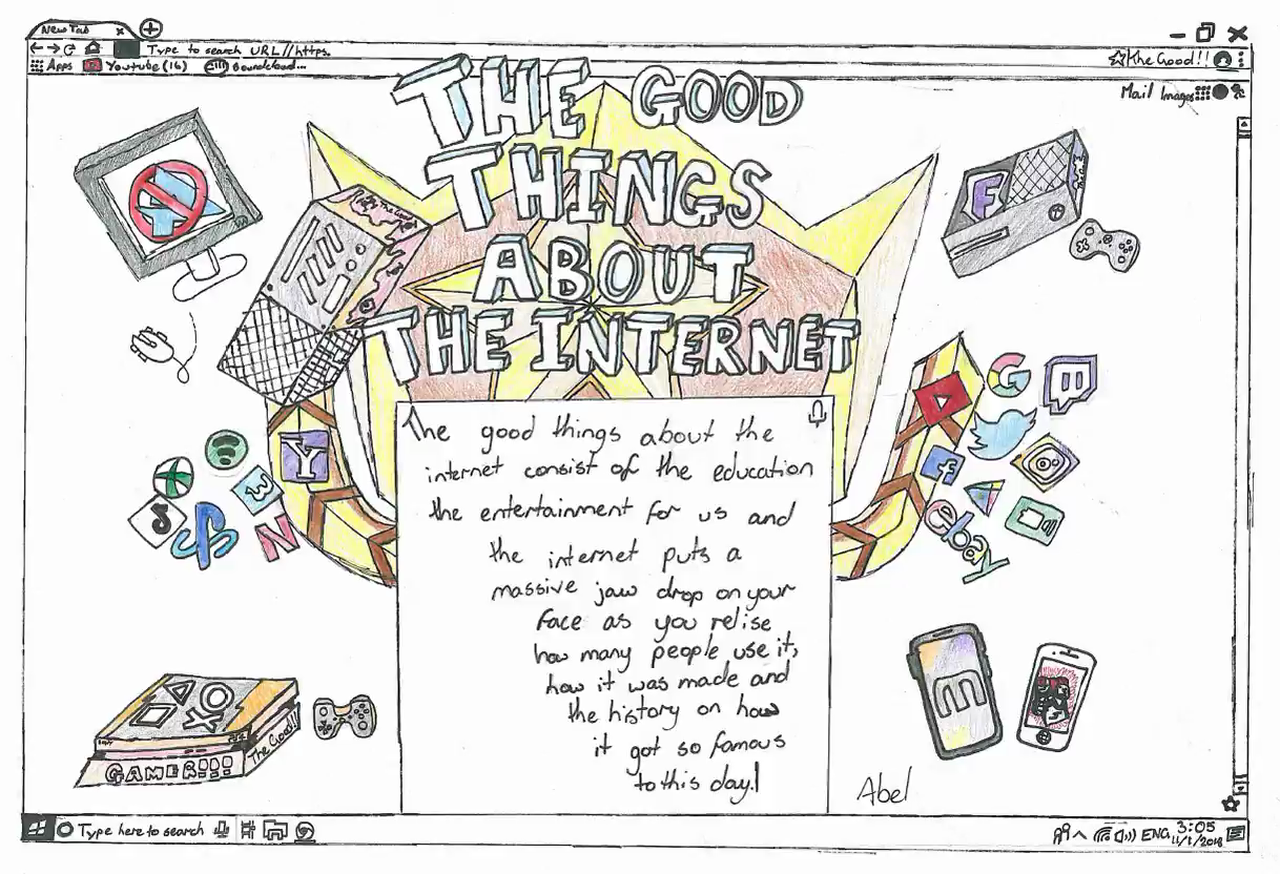 New Tab
Type to search URL//https.
Apps Youtube(16) Soundcloud...
The Good!!
Mail Images
THE GOOD
THINGS
ABOUT
THE INTERNET
The good things about the
internet consist of the education
the entertainment for us and
the internet puts a
massive jaw drop on your
face as you relise
how many people use it,
how it was made and
the history on how
it got so famous
to this day!
F
Y
G
f
ebay
N
GAMER!!!
The Good!!
m
Abel
Type here to search
ENG
3:05
11/1/2018